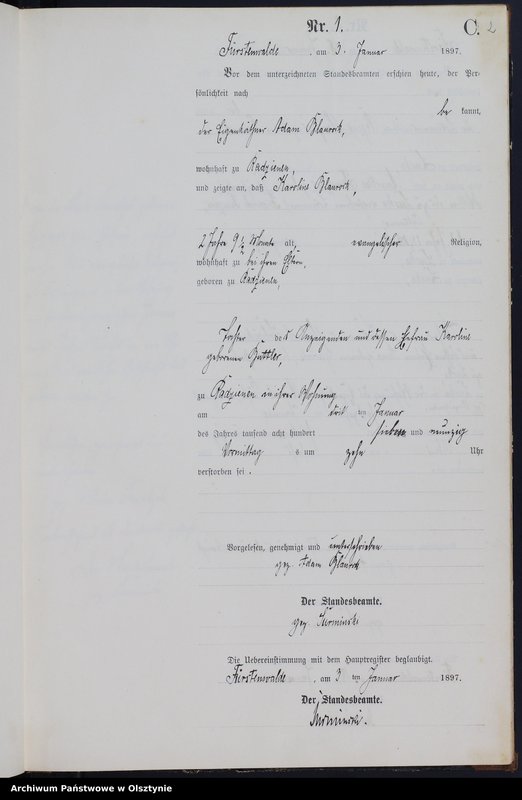 Nr. 1.
C. 2
Fürstenwalde, am 3. Januar 1897.
Vor dem unterzeichneten Standesbeamten erschien heute, der Per-
sönlichkeit nach
be kannt,
der Eigenkäthner Adam
wohnhaft zu Radzienen,
und zeigte an, daß Karoline
2 Jahre 9 1/2 Monate alt, evangelischer Religion,
wohnhaft zu bei ihren Eltern,
geboren zu Radzienen,
Tochter des Anzeigenden und dessen Ehefrau Karoline
geborenen
zu Radzienen in ihrer Wohnung
am drit ten Januar
des Jahres tausend acht hundert sieben und neunzig
Vormittag s um zehn Uhr
verstorben sei.
Vorgelesen, genehmigt und unterschrieben
gez. Adam
Der Standesbeamte.
gez. Surminski
Die Uebereinstimmung mit dem Hauptregister beglaubigt.
Fürstenwalde, am 3 ten Januar 1897.
Der Standesbeamte.
Surminski.
Archiwum Państwowe w Olsztynie